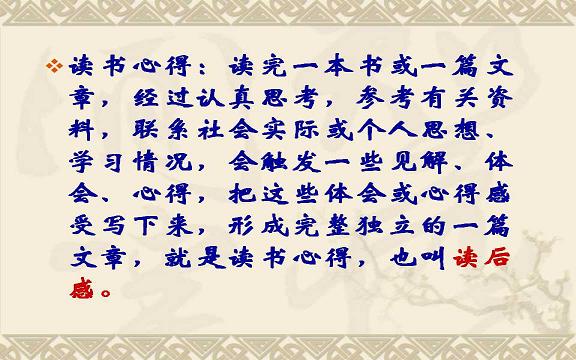 读书心得：读完一本书或一篇文
章，经过认真思考，参考有关资
料，联系社会实际或个人思想、
学习情况，会触发一些见解、体
会、心得，把这些体会或心得感
受写下来，形成完整独立的一篇
文章，就是读书心得，也叫读后
感。